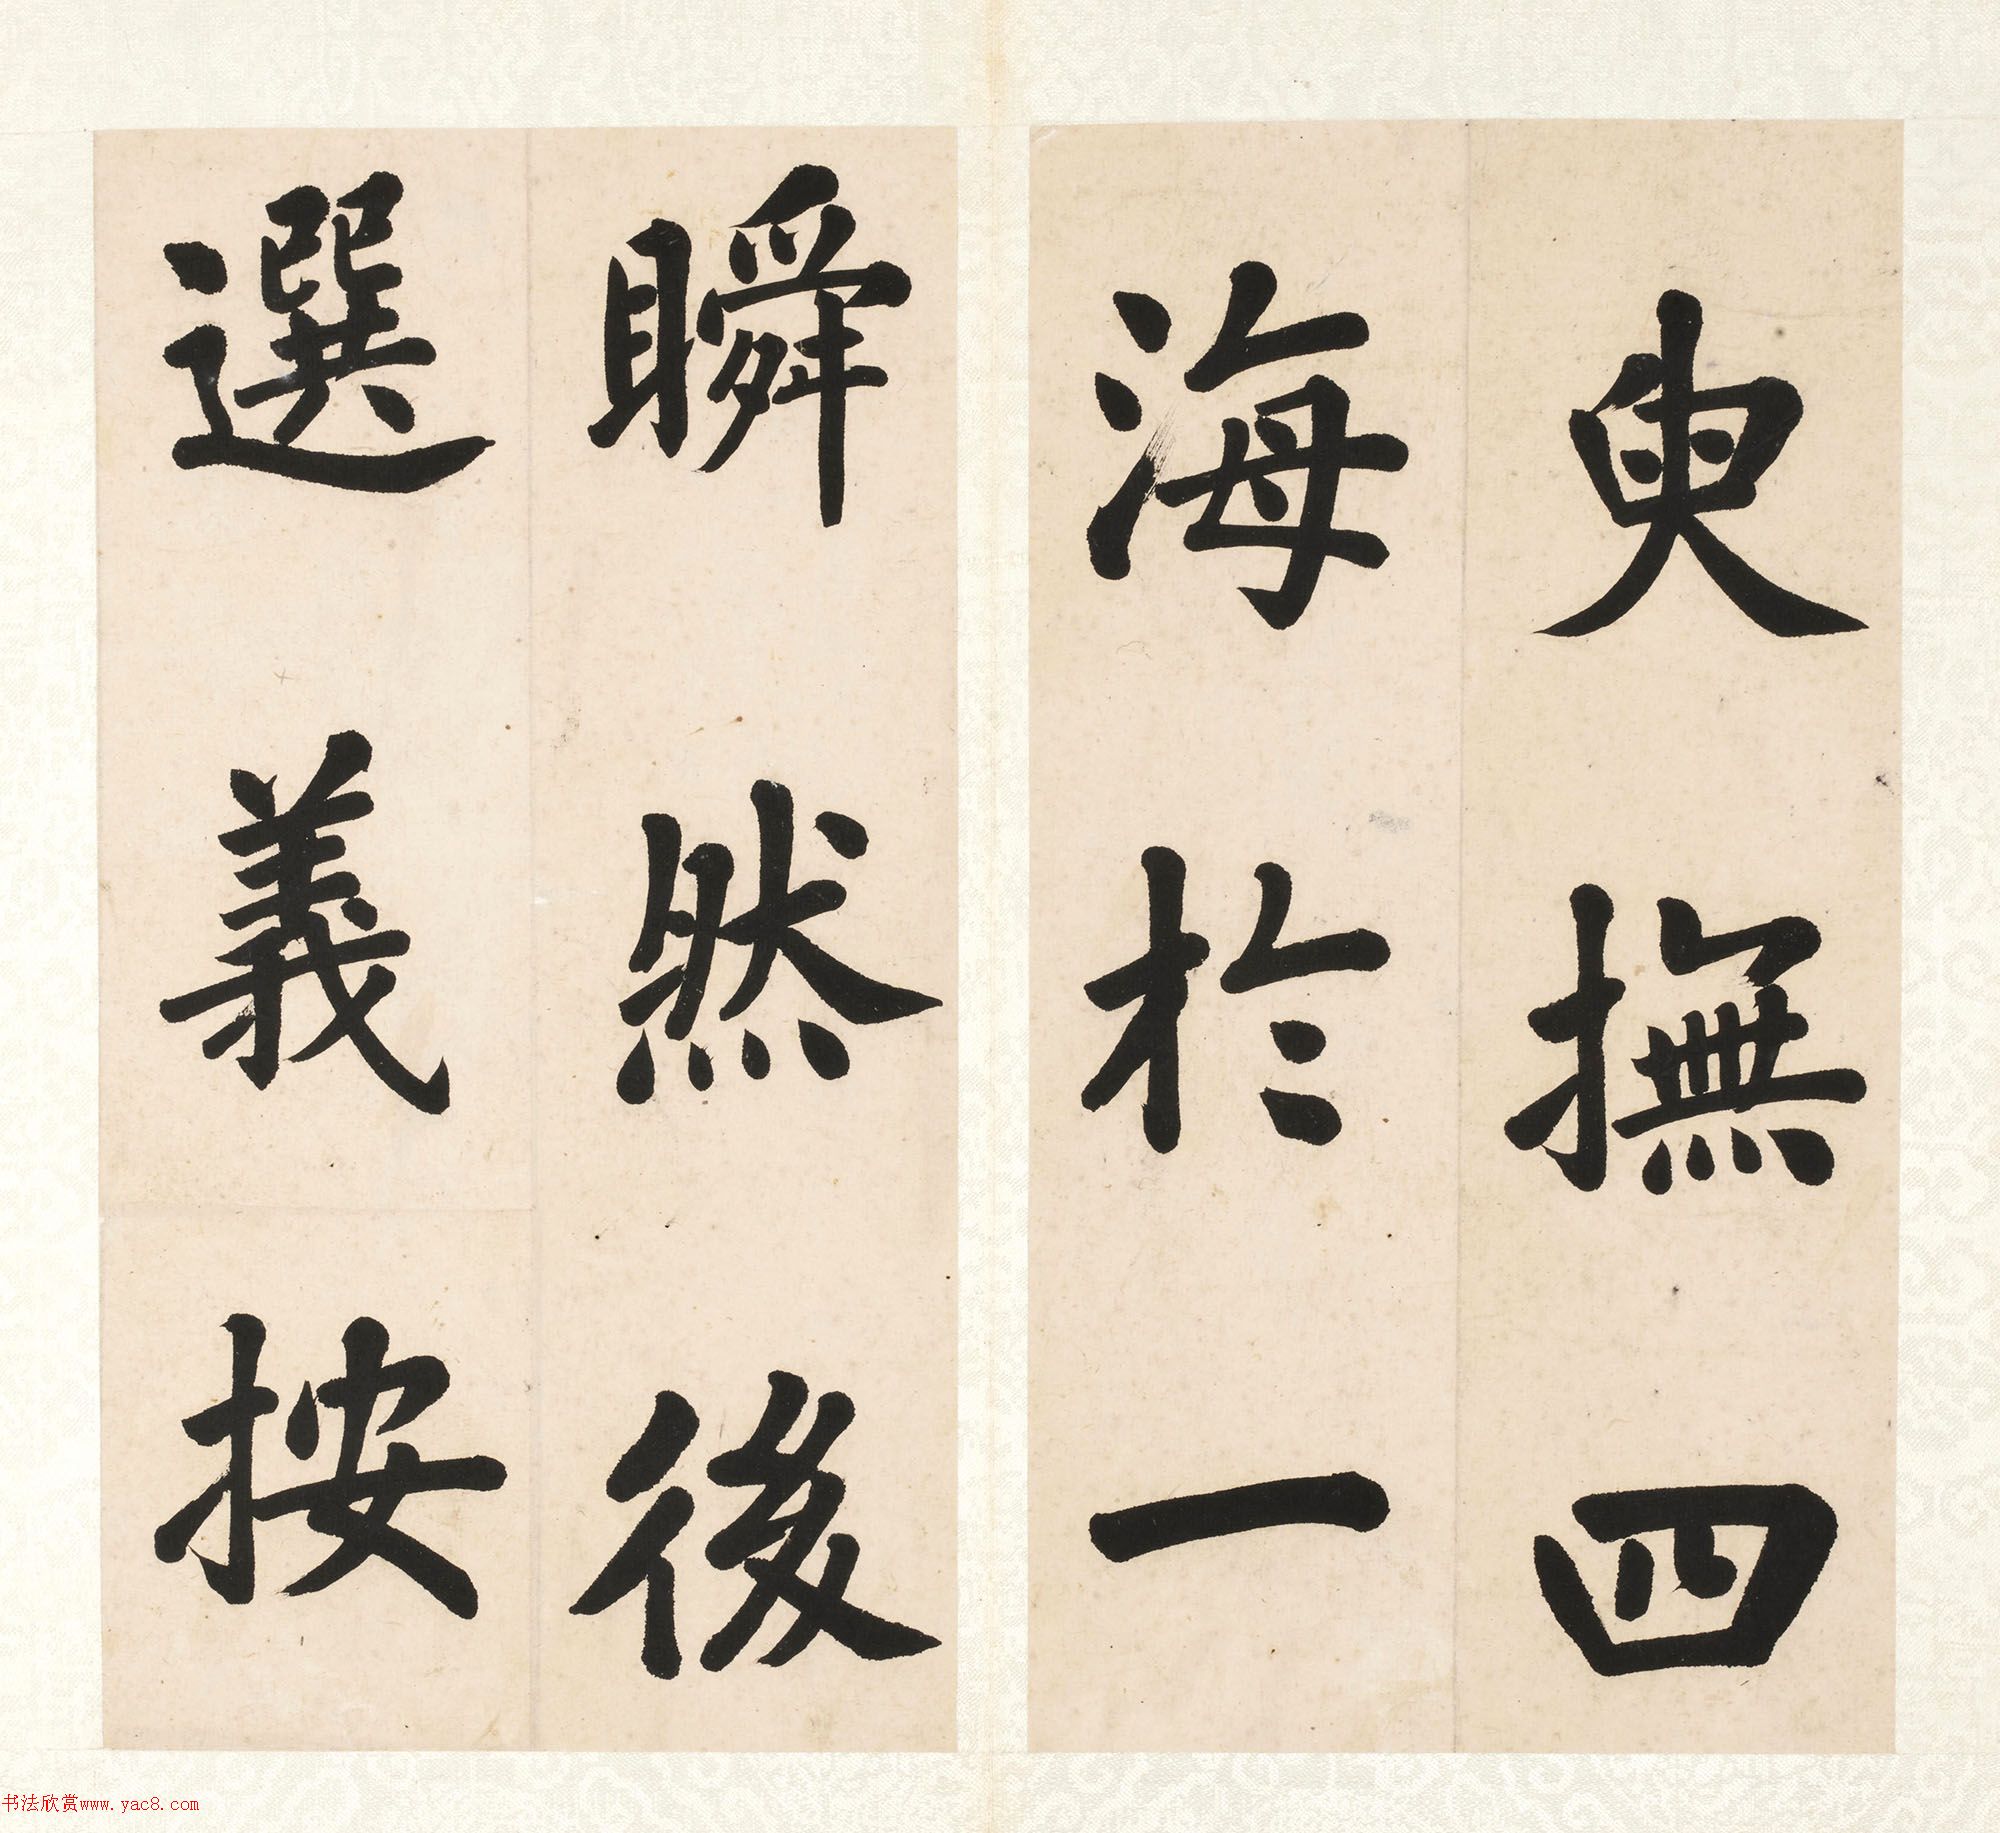 臾撫四
海於一
瞬然後
選義按
书法欣赏www.yac8.com